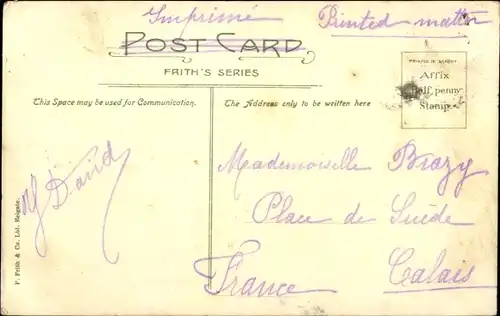 Imprimé Printed matter
POST CARD
FRITH'S SERIES
PRINTED IN SAXONY
Affix
Half penny
Stamp.
This Space may be used for Communication.
The Address only to be written here
David
Mademoiselle Brazy
Place de Suède
Calais
France
F. Frith & Co. Ltd. Reigate.